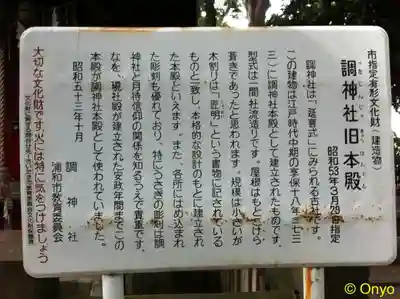 市指定有形文化財(建造物)
調神社旧本殿
つきじんじゃきゅうほんでん
昭和53年3月29日指定
調神社は、「延喜式」にみられる古社です。
この建物は江戸時代中期の享保十八年(一七三
三)に調神社本殿として建立されたものです。
型式は一間社流造りです。屋根はもとこけら
葺きであったと思われます。規模は小さいが
木割りは「匠明」という書物に記されている
ものと一致し、本格的な設計のもとに建立され
た本殿といえます。また、各所にはめ込まれ
た彫刻も優れており、特にうさぎの彫刻は調
神社と月待信仰の関係を知るうえで貴重です。
なを、現社殿が建立された安政年間までこの
本殿が調神社本殿として使われていました。
昭和五十三年十月
調神社
浦和市教育委員会
大切な文化財です火には特に気をつけましょう
© Onyo